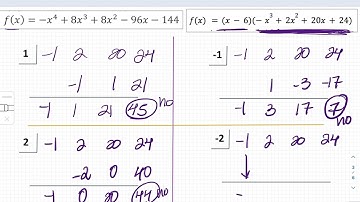 f(x) = −x⁴ + 8x³ + 8x² − 96x − 144
f(x) = (x − 6)(−x³ + 2x² + 20x + 24)
1 -1 2 20 24
-1 1 21
-1 1 21 45 no
-1 -1 2 20 24
1 -3 -17
-1 3 17 7 no
2 -1 2 20 24
-2 0 40
-1 0 20 44 no
-2 -1 2 20 24